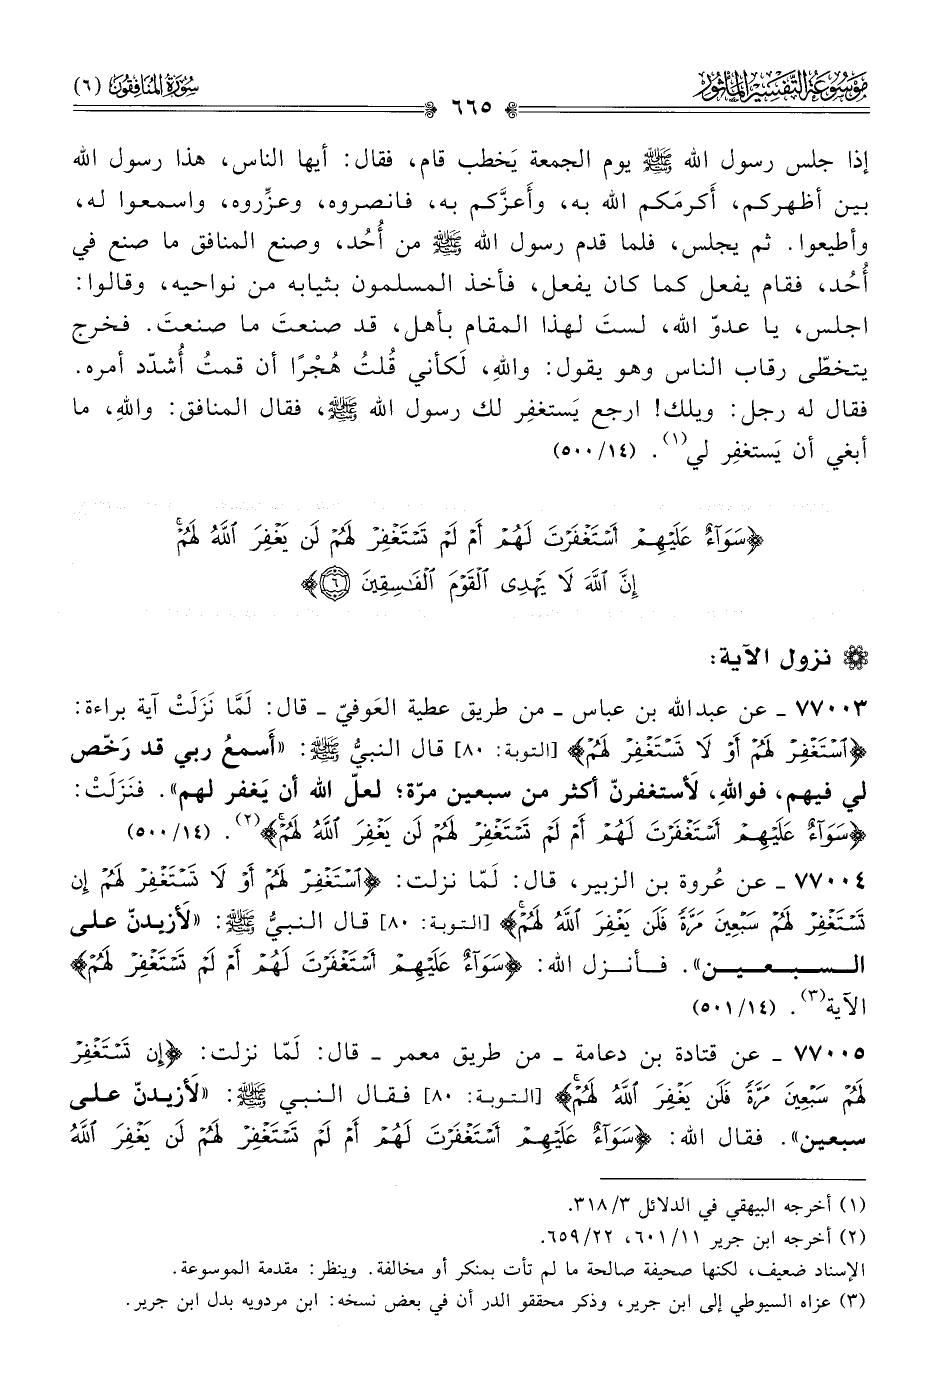 موسوعة التفسير المأثور
سورة المنافقون (٦)
٦٦٥
إذا جلس رسول الله ﷺ يوم الجمعة يَخطب قام، فقال: أيها الناس، هذا رسول الله
بين أظهركم، أَكرمَكم الله به، وأَعزَّكم به، فانصروه، وعزِّروه، واسمعوا له،
وأطيعوا. ثم يجلس، فلما قدم رسول الله ﷺ من أُحُد، وصنع المنافق ما صنع في
أُحُد، فقام يفعل كما كان يفعل، فأخذ المسلمون بثيابه من نواحيه، وقالوا:
اجلس، يا عدوّ الله، لستَ لهذا المقام بأهل، قد صنعتَ ما صنعتَ. فخرج
يتخطّى رقاب الناس وهو يقول: واللهِ، لَكأني قُلتُ هُجْرًا أن قمتُ أُشدّد أمره.
فقال له رجل: ويلك! ارجع يَستغفِر لك رسول الله ﷺ، فقال المنافق: واللهِ، ما
أبغي أن يَستغفِر لي(١). (١٤/ ٥٠٠)
﴿سَوَآءٌ عَلَيْهِمْ أَسْتَغْفَرْتَ لَهُمْ أَمْ لَمْ تَسْتَغْفِرْ لَهُمْ لَن يَغْفِرَ ٱللَّهُ لَهُمْۚ
إِنَّ ٱللَّهَ لَا يَهْدِى ٱلْقَوْمَ ٱلْفَـٰسِقِينَ ٦﴾
نزول الآية:
٧٧٠٠٣ ـ عن عبدالله بن عباس ـ من طريق عطية العَوفيّ ـ قال: لَمَّا نَزَلَتْ آية براءة:
﴿ٱسْتَغْفِرْ لَهُمْ أَوْ لَا تَسْتَغْفِرْ لَهُمْ﴾ [التوبة: ٨٠] قال النبيُّ ﷺ: «أَسمعُ ربي قد رَخّص
لي فيهم، فواللهِ، لَأستغفرنّ أكثر من سبعين مرّة؛ لعلّ الله أن يَغفر لهم». فنَزَلَتْ:
﴿سَوَآءٌ عَلَيْهِمْ أَسْتَغْفَرْتَ لَهُمْ أَمْ لَمْ تَسْتَغْفِرْ لَهُمْ لَن يَغْفِرَ ٱللَّهُ لَهُمْۚ﴾(٢). (١٤/ ٥٠٠)
٧٧٠٠٤ ـ عن عُروة بن الزبير، قال: لَمّا نزلت: ﴿ٱسْتَغْفِرْ لَهُمْ أَوْ لَا تَسْتَغْفِرْ لَهُمْ إِن
تَسْتَغْفِرْ لَهُمْ سَبْعِينَ مَرَّةً فَلَن يَغْفِرَ ٱللَّهُ لَهُمْۚ﴾ [التوبة: ٨٠] قال النبيُّ ﷺ: «لَأزيدنّ على
السبعين». فأنزل الله: ﴿سَوَآءٌ عَلَيْهِمْ أَسْتَغْفَرْتَ لَهُمْ أَمْ لَمْ تَسْتَغْفِرْ لَهُمْ﴾
الآية(٣). (١٤/ ٥٠١)
٧٧٠٠٥ ـ عن قتادة بن دعامة ـ من طريق معمر ـ قال: لَمّا نزلت: ﴿إِن تَسْتَغْفِرْ
لَهُمْ سَبْعِينَ مَرَّةً فَلَن يَغْفِرَ ٱللَّهُ لَهُمْۚ﴾ [التوبة: ٨٠] فقال النبي ﷺ: «لَأزيدنّ على
سبعين». فقال الله: ﴿سَوَآءٌ عَلَيْهِمْ أَسْتَغْفَرْتَ لَهُمْ أَمْ لَمْ تَسْتَغْفِرْ لَهُمْ لَن يَغْفِرَ ٱللَّهُ
(١) أخرجه البيهقي في الدلائل ٣/ ٣١٨.
(٢) أخرجه ابن جرير ١١/ ٦٠١، ٢٢/ ٦٥٩.
الإسناد ضعيف، لكنها صحيفة صالحة ما لم تأت بمنكر أو مخالفة. وينظر: مقدمة الموسوعة.
(٣) عزاه السيوطي إلى ابن جرير، وذكر محققو الدر أن في بعض نسخه: ابن مردويه بدل ابن جرير.